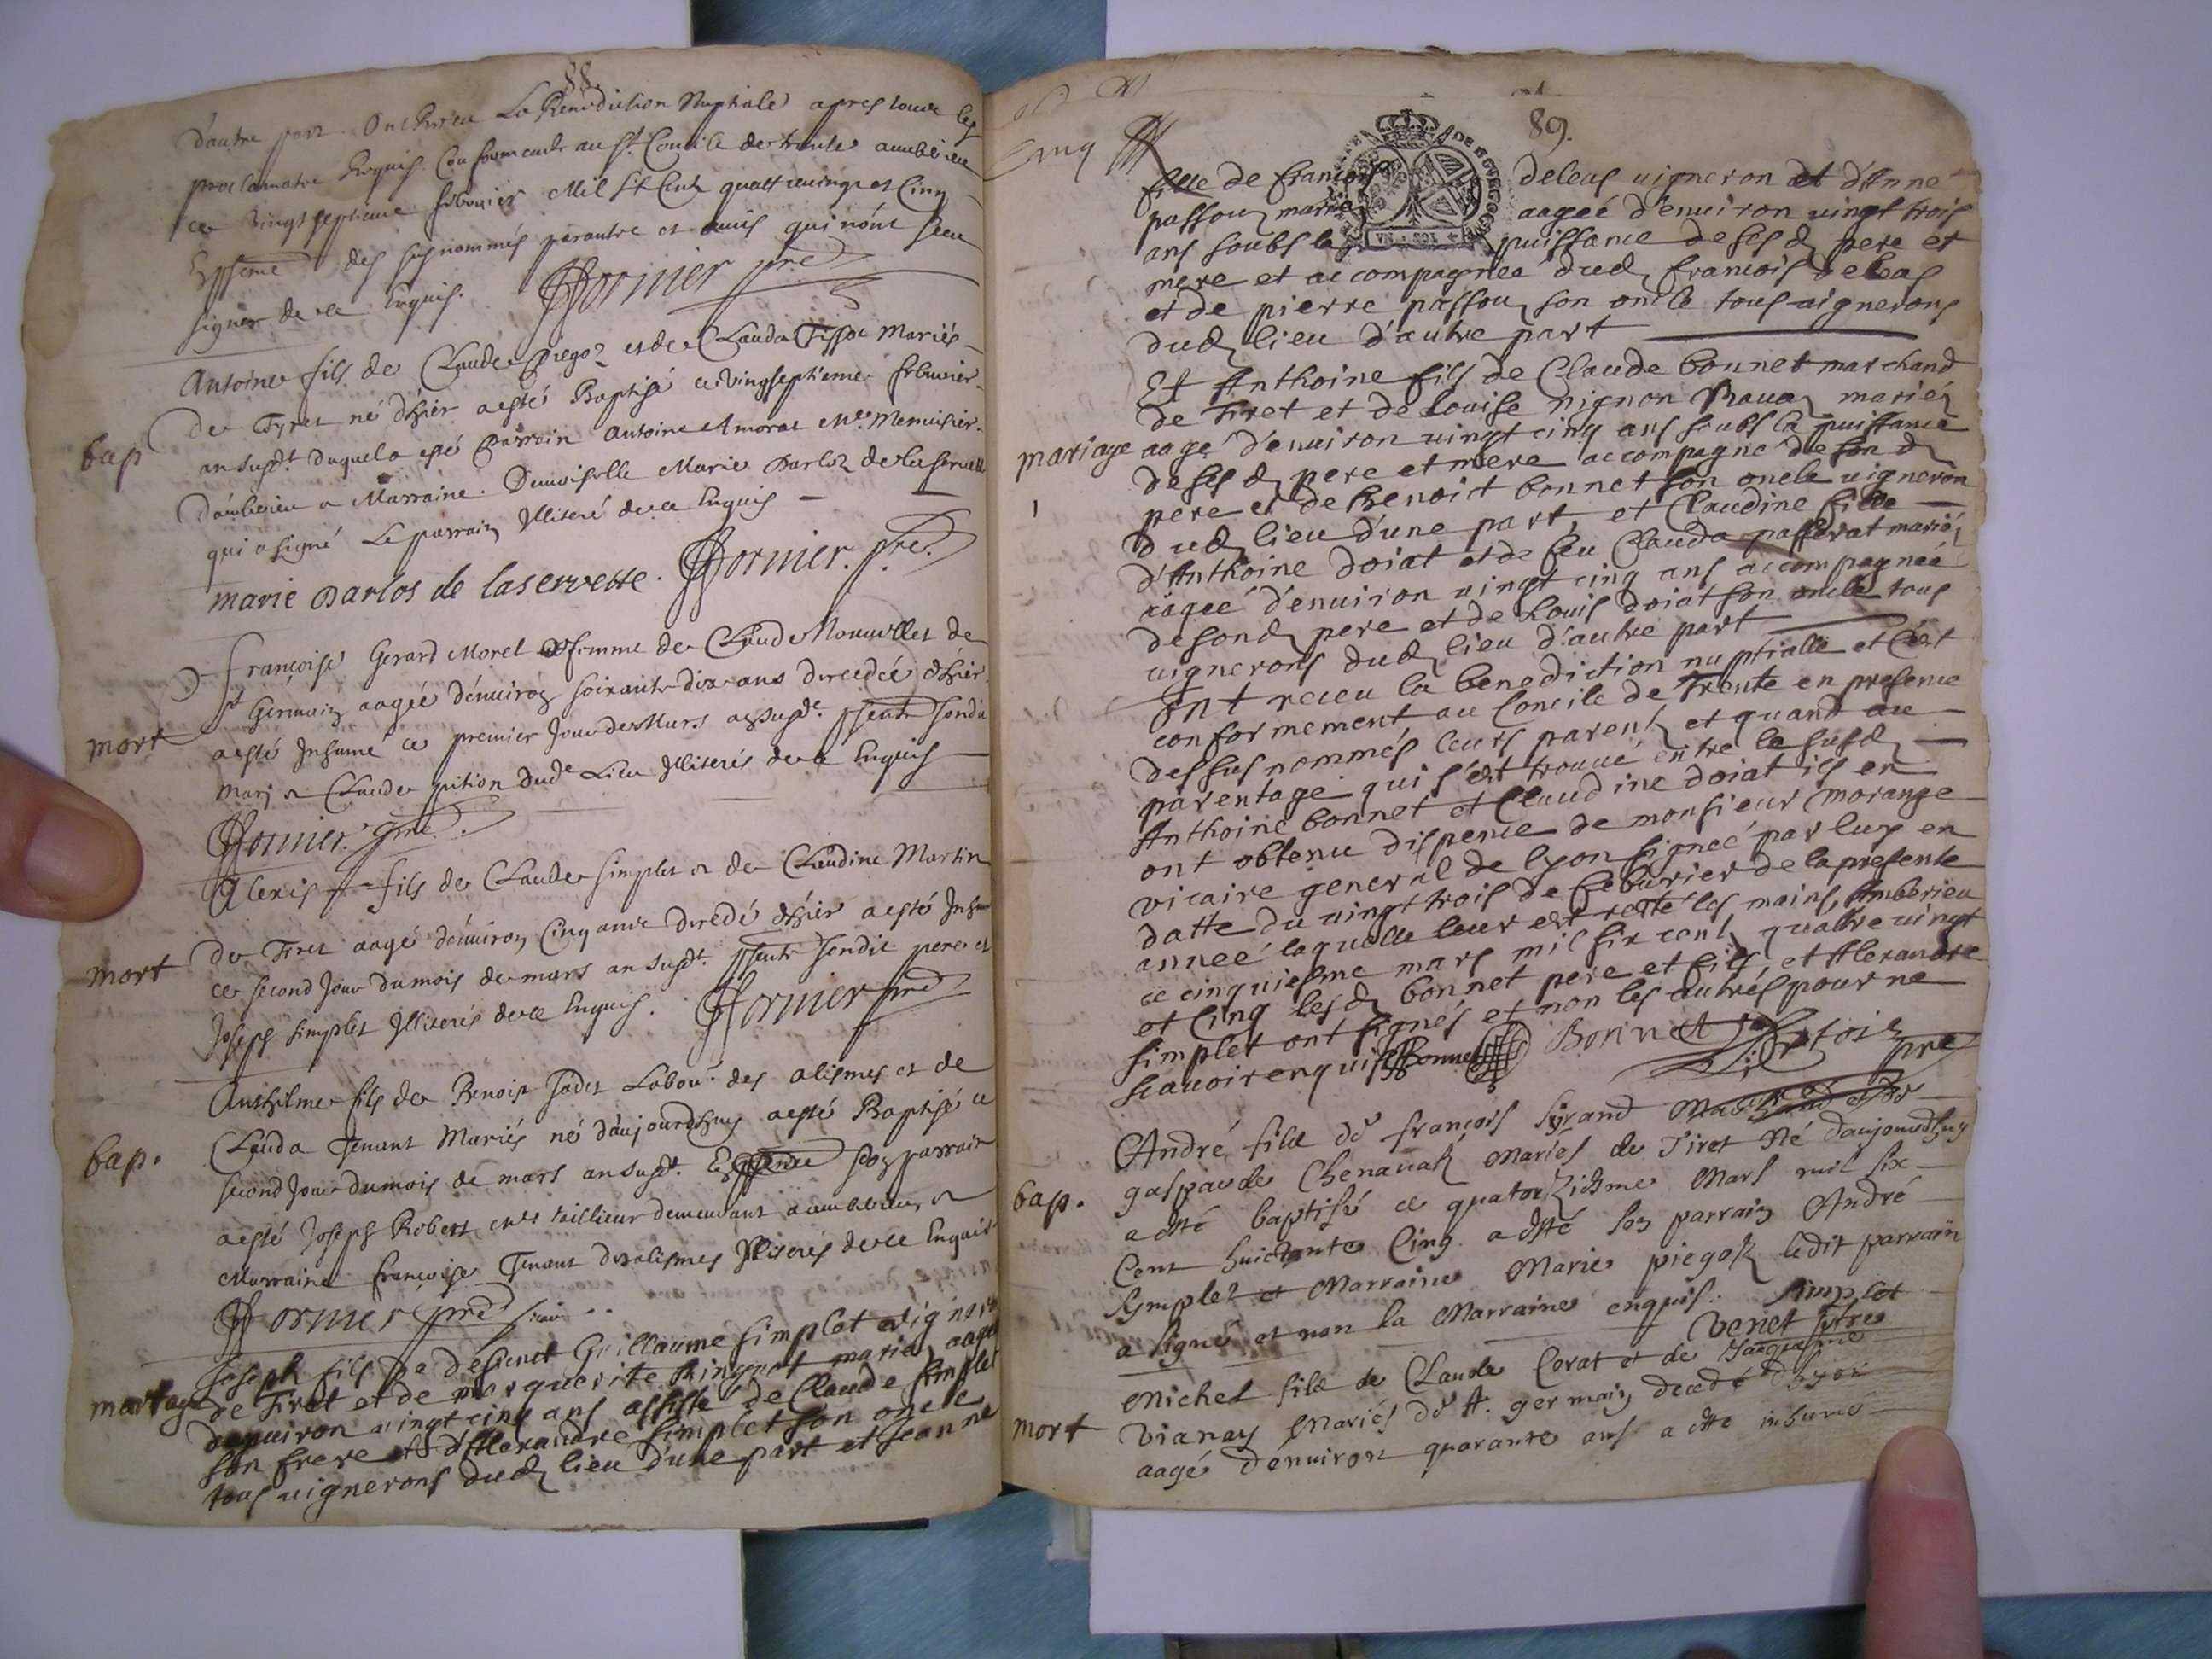 88
d'autre part. Ont Receu La Benediction Nuptiale apres toute les
proclamatre Requis. Conformemt au St. Concile de trente ambérieu
ce vingt septieme febvrier Mil St Cent quattrevingt et Cinq
des susnommés parantre et amis qui n'ont sceu
signer de ce Enquis. Hornier pre
Antoine fils de Claude Piegoz et de Clauda Tissot Mariés
de Tyret né d'hier aesté Baptisé ce vingseptieme febvrier
bap
an susdt. duquel a esté Parrain Antoine Amorat Me. Menuisier
d'amberieu et Marraine. Demoiselle Marie Darloz de la servette
qui a signé Le parrain Illiteré de ce Enquis
marie Darlos de laservette. Hornier. pre.
françoise Gerard Morel femme de Claude de
St Germain aagée d'enuiron soixante dix ans decedée d'hier
mort
aesté Inhumé ce premier Jour de Mars an susdt. sondit
Marj et Claude dudt Lieu Illiterés de ce Enquis
Hornier. pre.
Alexis fils de Claude simplet et de Claudine Martin
de Tiret aagé d'enuiron Cinq ans decedé d'hier aesté Inhumé
mort
ce second Jour du mois de mars an susdt. sondit pere et
Joseph simplet Illiterés de ce Enquis. Hornier pre
Anthilme fils de Benoist Jadet Labour. des alismes et de
Clauda Tenant Mariés né d'aujourdhuy aesté Baptisé ce
bap.
second Jour du mois de mars an susdt. son parrain
aesté Joseph Robert me taillieur demeurant a amberieu, et
Marraine françoise Tenant des alismes Illiterés de ce Enquis
Hornier pre
Joseph fils de defunct Guillaume simplet vigneron
mariage
de Tiret et de marguerite mariez aagé
denuiron vingt cinq ans assisté de Claude simplet
son frere et d'Alexandre simplet son oncle
tous uignerons dud lieu d'une part et Jeanne
89.
fille de francois deleas uigneron et d'Anne
passouz mariez aageé d'enuiron uingt trois
ans soubs la puissance de ses d pere et
mere et accompagnea dud francois deleas
et de pierre passouz son oncle tous uignerons
dud lieu d'autre part
Et Anthoine fils de Claude bonnet marchand
de Tiret et de Louise nignon mariez
mariage
aagé d'enuiron uingt cinq ans soubs la puissance
de ses d pere et mere accompagné de son d
pere et de Benoict bonnet son oncle uigneron
dud lieu d'une part, et Claudine fille
d'Anthoine doiat et de feu Clauda passerat mariéz
aageé d'enuiron uingt cinq ans accompagneé
de son d pere et de Louis doiat son oncle tous
uignerons dud lieu d'autre part
Ont receu la benediction nuptialle et c'est
conformement au Concile de Trente en presence
des sus nommés leurs parents et quand au
parentage qui s'est trouué entre le susd
Anthoine bonnet et Claudine doiat ils en
ont obtenu dispence de monsieur morange
vicaire general de lyon signeé par luy en
datte du uingt trois de feburier de la presente
anneé laquelle leur est resté les mains, Amberieu
ce cinquiesme mars mil six cents quattre uingt
et Cinq lesd bonnet pere et fils, et Alexandre
simplet ont signés et non les autres pour ne
scauoir enquis. Bonnet Bonnet pre
André filz de francois sirand
gasparde Chenauaz Mariés de Tiret Né daujourdhuy
bap.
a esté baptisé ce quatorziesme Mars mil six
Cent huictante Cinq. a esté son parrain André
simplet et Marraine Marie piegoz ledit parrain
a signé et non la Marraine enquis. simplet
Venet ptre
Michel filz de Claude Corat et de
mort
Vianay Mariés de st. germain decedé d'hyer
aagé d'enuiron quarante ans a esté inhumé